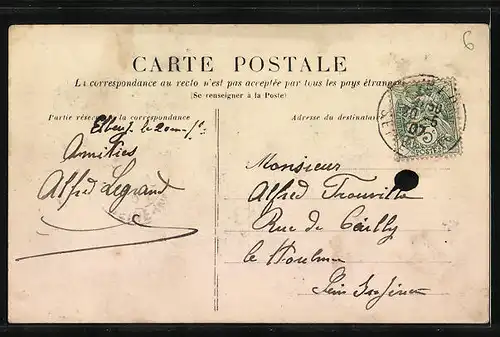 6
CARTE POSTALE
La correspondance au recto n'est pas acceptée par tous les pays étrangers
(Se renseigner à la Poste)
Partie réservée à la correspondance
Adresse du destinataire
Elbeuf. le 20
Amitiés
Alfred Legrand
Monsieur
Alfred Trouville
Rue de Cailly
le Houlme
Seine Inférieure